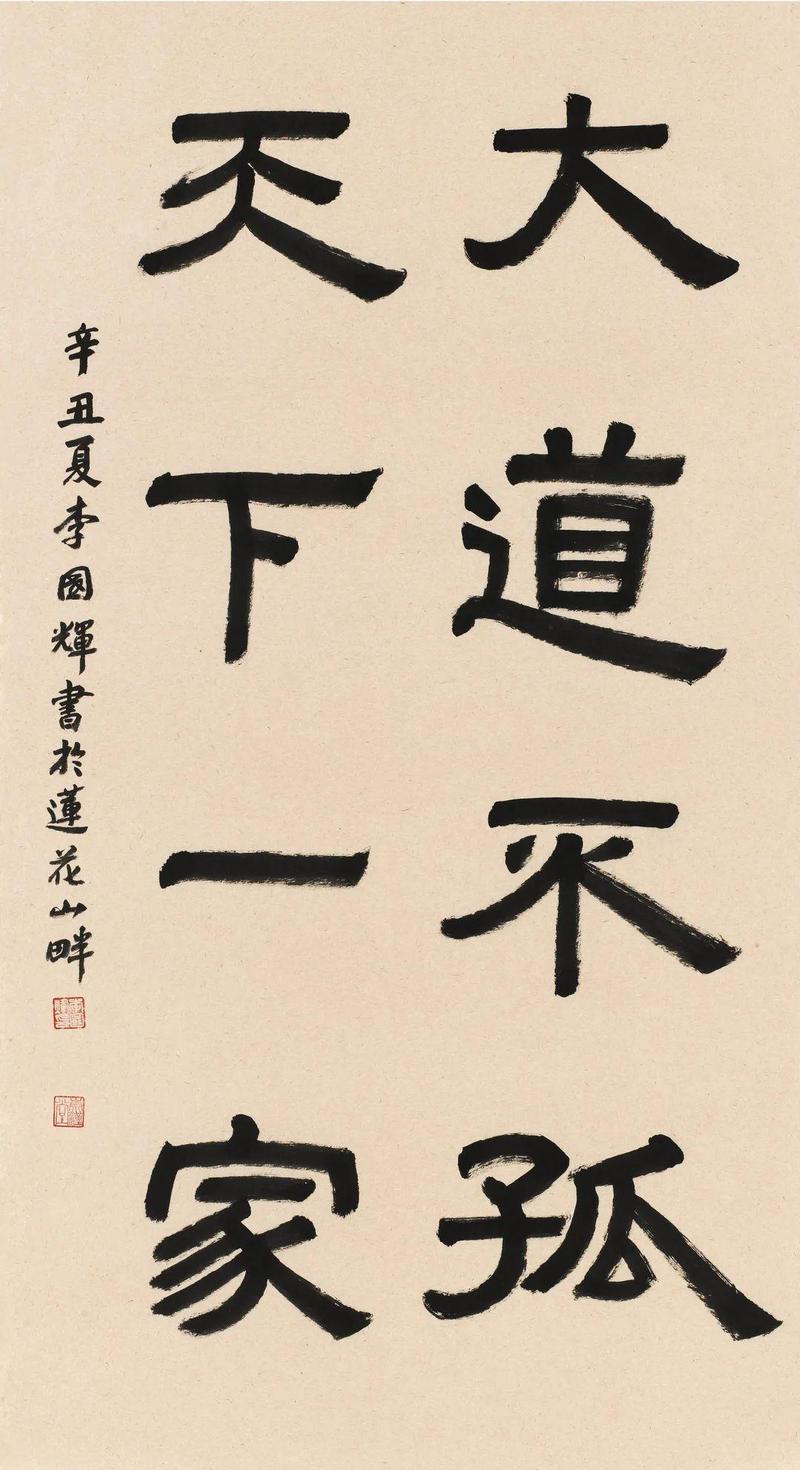 大道不孤
天下一家
辛丑夏李國輝書於蓮花山畔